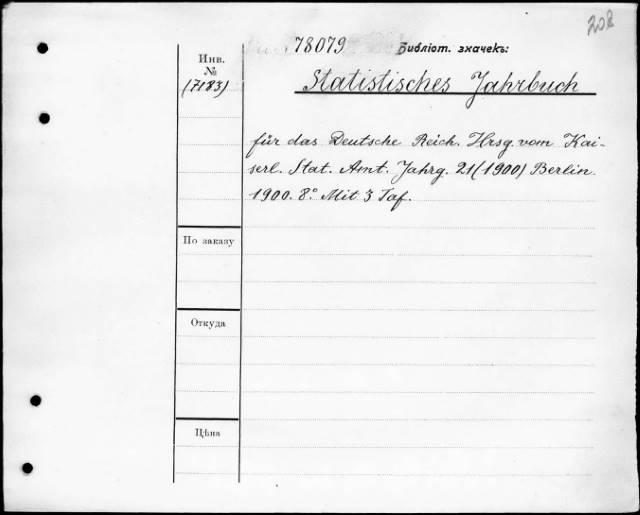 208
78079 Библіот. значекъ:
Инв.
№
(7183)
Statistisches Jahrbuch
für das Deutsche Reich. Hrsg. vom Kai-
serl. Stat. Amt. Jahrg. 21(1900) Berlin.
1900. 8° Mit 3 Taf.
По заказу
Откуда
Цѣна